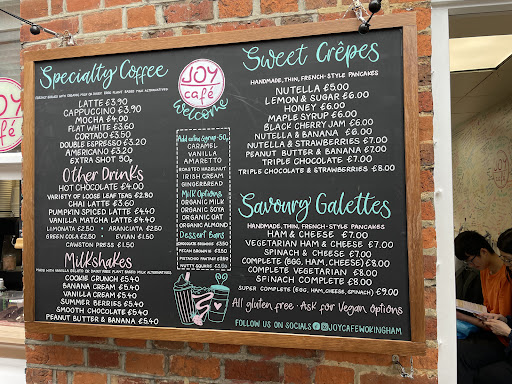 Specialty Coffee
LATTE £3.90
CAPPUCCINO £3.90
MOCHA £4.00
FLAT WHITE £3.60
CORTADO £3.50
DOUBLE ESPRESSO £3.20
AMERICANO £3.20
EXTRA SHOT 50p
Other Drinks
HOT CHOCOLATE £4.00
VARIETY OF LOOSE LEAF TEAS £2.80
CHAI LATTE £3.60
PUMPKIN SPICED LATTE £4.40
VANILLA MATCHA LATTE £4.40
LIMONATA £2.50 • ARANCIATA £2.50
GREEN COLA £2.50 • EVIAN £1.50
CAWSTON PRESS £1.50
Milkshakes
MADE WITH VANILLA GELATO OR DAIRY FREE PLANT BASED MILK ALTERNATIVES
COOKIE CRUNCH £5.40
BANANA CREAM £5.40
VANILLA CREAM £5.40
SUMMER BERRIES £5.40
SMOOTH CHOCOLATE £5.40
PEANUT BUTTER & BANANA £5.40
JOY
café
Welcome
Add extra Syrup 50p
CARAMEL
VANILLA
AMARETTO
ROASTED HAZELNUT
IRISH CREAM
GINGERBREAD
Milk Options
ORGANIC MILK
ORGANIC SOYA
ORGANIC OAT
ORGANIC ALMOND
Dessert Bars
CHOCOLATE BROWNIE
PECAN BLONDIE
PISTACHIO FANTASY
FRUITY SQUARE
Sweet Crêpes
HANDMADE, THIN, FRENCH-STYLE PANCAKES
NUTELLA £5.00
LEMON & SUGAR £6.00
HONEY £6.00
MAPLE SYRUP £6.00
BLACK CHERRY JAM £6.00
NUTELLA & BANANA £6.00
NUTELLA & STRAWBERRIES £7.00
PEANUT BUTTER & BANANA £7.00
TRIPLE CHOCOLATE £7.00
TRIPLE CHOCOLATE & STRAWBERRIES £8.00
Savoury Galettes
HANDMADE, THIN, FRENCH-STYLE PANCAKES
HAM & CHEESE £7.00
VEGETARIAN HAM & CHEESE £7.00
SPINACH & CHEESE £7.00
COMPLETE (EGG, HAM, CHEESE) £8.00
COMPLETE VEGETARIAN £8.00
SPINACH COMPLETE £8.00
SUPER COMPLETE (EGG, HAM, CHEESE, SPINACH) £9.00
All gluten free • Ask for Vegan Options
FOLLOW US ON SOCIALS @JOYCAFEWOKINGHAM
JOY
café